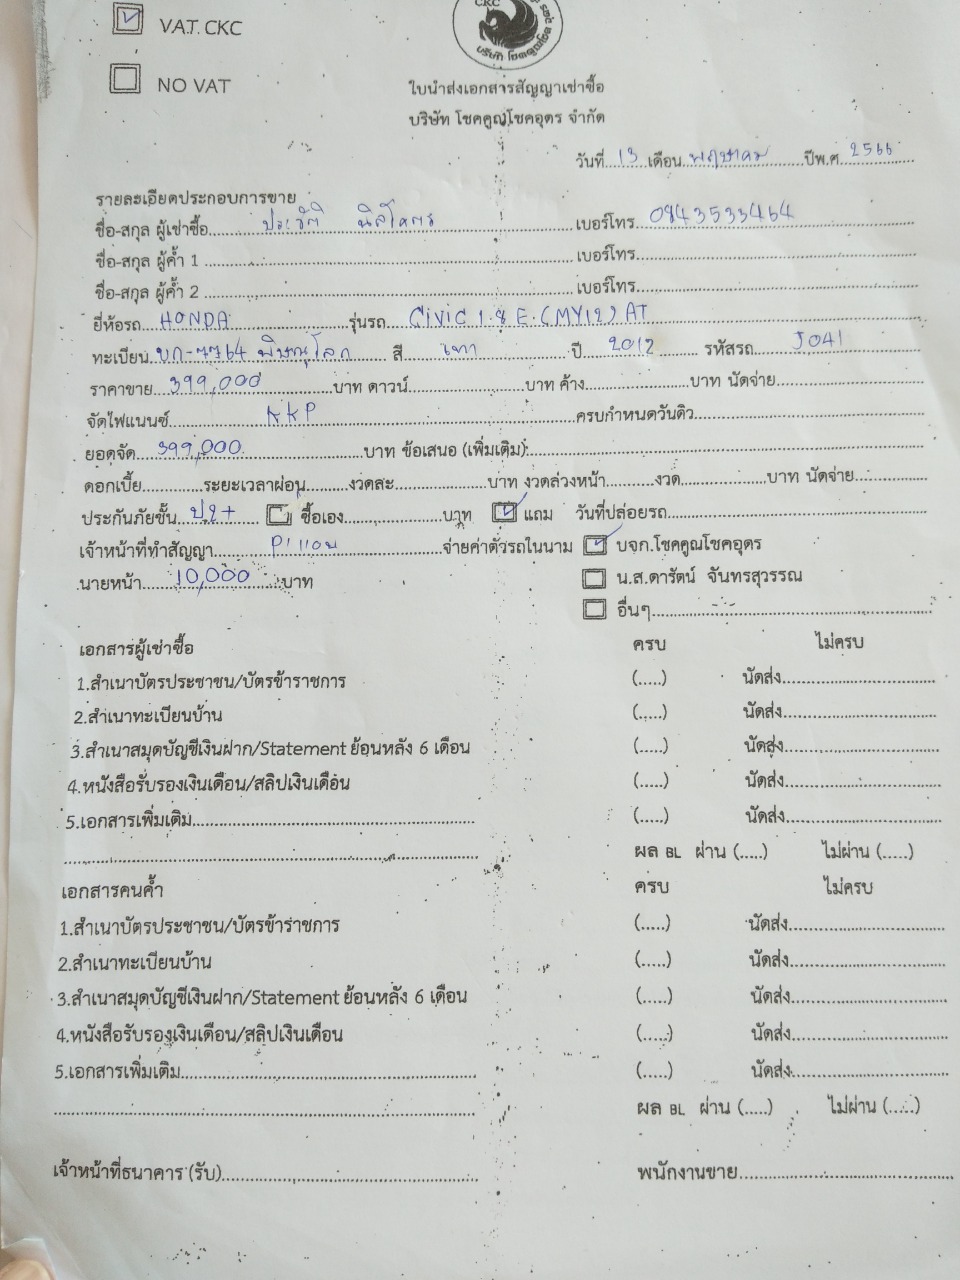 VAT. CKC
CKC
NO VAT
ใบนำส่งเอกสารสัญญาเช่าซื้อ
บริษัท โชคคูณโชคอุดร จำกัด
วันที่ 13 เดือน พฤษาคม ปีพ.ศ. 2566
รายละเอียดประกอบการขาย
ชื่อ-สกุล ผู้เช่าซื้อ ประวัติ นิลโคตร เบอร์โทร 0843533464
ชื่อ-สกุล ผู้ค้ำ 1 เบอร์โทร
ชื่อ-สกุล ผู้ค้ำ 2 เบอร์โทร
ยี่ห้อรถ HONDA รุ่นรถ CIVIC 1.8 E (MY12) AT
ทะเบียน บก-7764 พิษณุโลก สี เทา ปี 2012 รหัสรถ J041
ราคาขาย 399,000 บาท ดาวน์ บาท ค้าง บาท นัดจ่าย
จัดไฟแนนซ์ KKP ครบกำหนดวันคิว
ยอดจัด 399,000 บาท ข้อเสนอ (เพิ่มเติม):
ดอกเบี้ย ระยะเวลาผ่อน งวดละ บาท งวดล่วงหน้า งวด บาท นัดจ่าย
ประกันภัยชั้น ป.2+ ซื้อเอง บาท แถม วันที่ปล่อยรถ
เจ้าหน้าที่ทำสัญญา จ่ายค่าตัวรถในนาม บจก.โชคคูณโชคอุดร
นายหน้า 10,000 บาท น.ส.ดารัตน์ จันทรสุวรรณ
อื่นๆ
เอกสารผู้เช่าซื้อ ครบ ไม่ครบ
1.สำเนาบัตรประชาชน/บัตรข้าราชการ (.....) นัดส่ง
2.สำเนาทะเบียนบ้าน (.....) นัดส่ง
3.สำเนาสมุดบัญชีเงินฝาก/Statement ย้อนหลัง 6 เดือน (.....) นัดส่ง
4.หนังสือรับรองเงินเดือน/สลิปเงินเดือน (.....) นัดส่ง
5.เอกสารเพิ่มเติม (.....) นัดส่ง
ผล BL ผ่าน (.....) ไม่ผ่าน (.....)
เอกสารคนค้ำ ครบ ไม่ครบ
1.สำเนาบัตรประชาชน/บัตรข้าราชการ (.....) นัดส่ง
2.สำเนาทะเบียนบ้าน (.....) นัดส่ง
3.สำเนาสมุดบัญชีเงินฝาก/Statement ย้อนหลัง 6 เดือน (.....) นัดส่ง
4.หนังสือรับรองเงินเดือน/สลิปเงินเดือน (.....) นัดส่ง
5.เอกสารเพิ่มเติม (.....) นัดส่ง
ผล BL ผ่าน (.....) ไม่ผ่าน (.....)
เจ้าหน้าที่ธนาคาร (รับ) พนักงานขาย